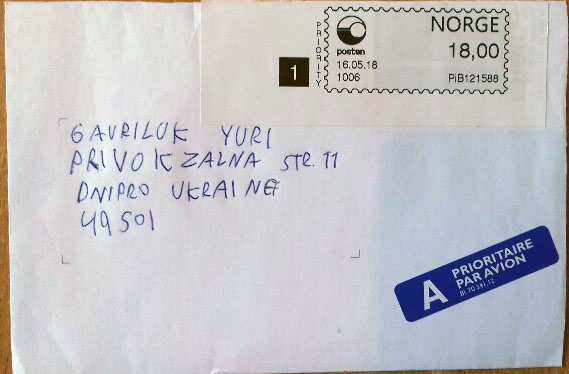 NORGE
18,00
posten
16.05.18
1006
PiB121588
PRIORITY
1
GAVRILUK YURI
PRIVOKZALNA STR. 11
DNIPRO UKRAINE
49501
A PRIORITAIRE
PAR AVION